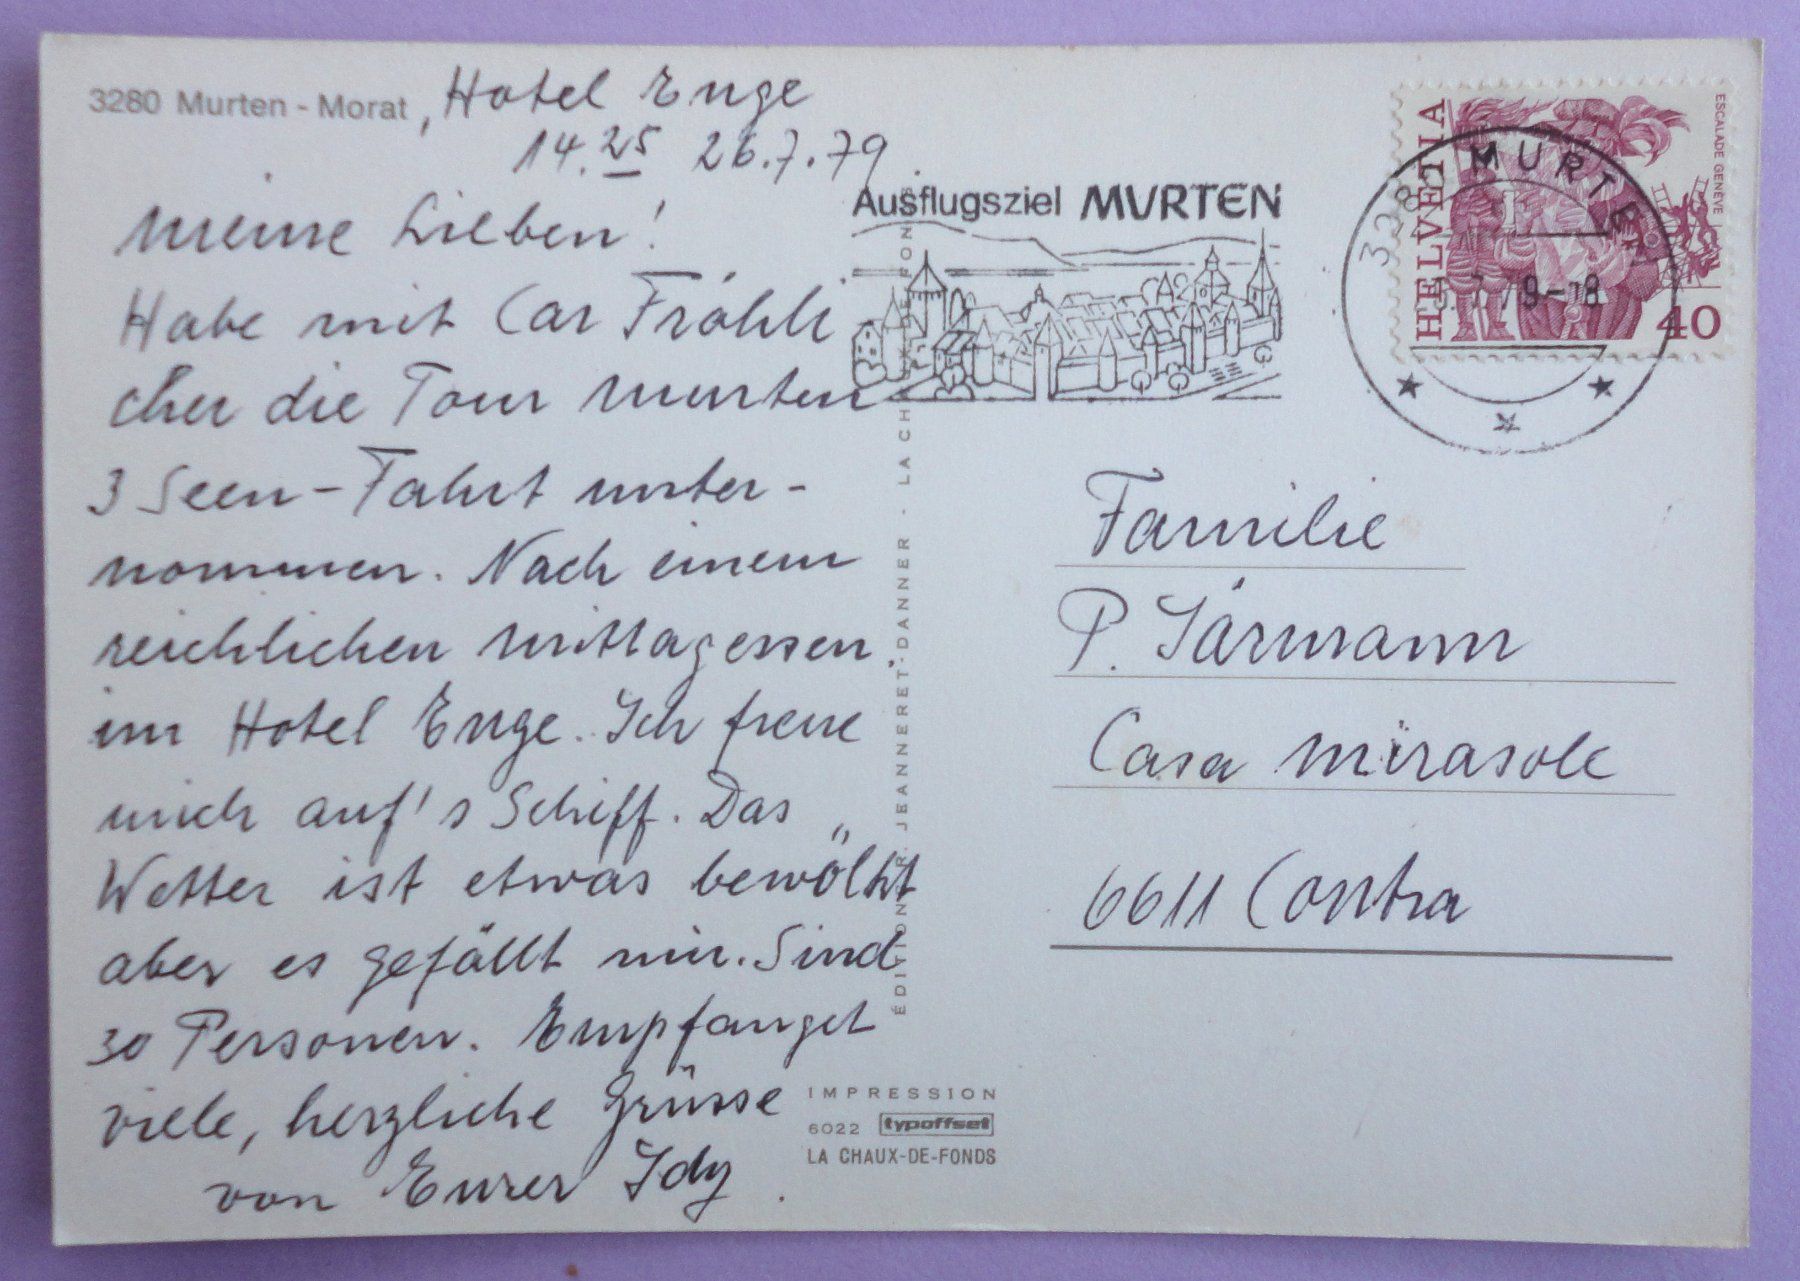 3280 Murten - Morat, Hotel Enge
14.25 26.7.79.
Meine Lieben!
Habe mit Car Fröhli
cher die Tour Murten
3 Seen-Fahrt unter-
nommen. Nach einem
reichlichen Mittagessen
im Hotel Enge. Ich freue
mich auf's Schiff. Das
Wetter ist etwas bewölkt
aber es gefällt mir. Sind
30 Personen. Empfanget
viele, herzliche Grüsse
von Eurer Idy
Ausflugsziel MURTEN
ÉDITION R. JEANNERET-DANNER · LA CHAUX-DE-FONDS
IMPRESSION
6022 typoffset
LA CHAUX-DE-FONDS
HELVETIA
ESCALADE GENÈVE
40
3280 MURTEN
79-18
Familie
P. Järmann
Casa Mirasole
6611 Contra